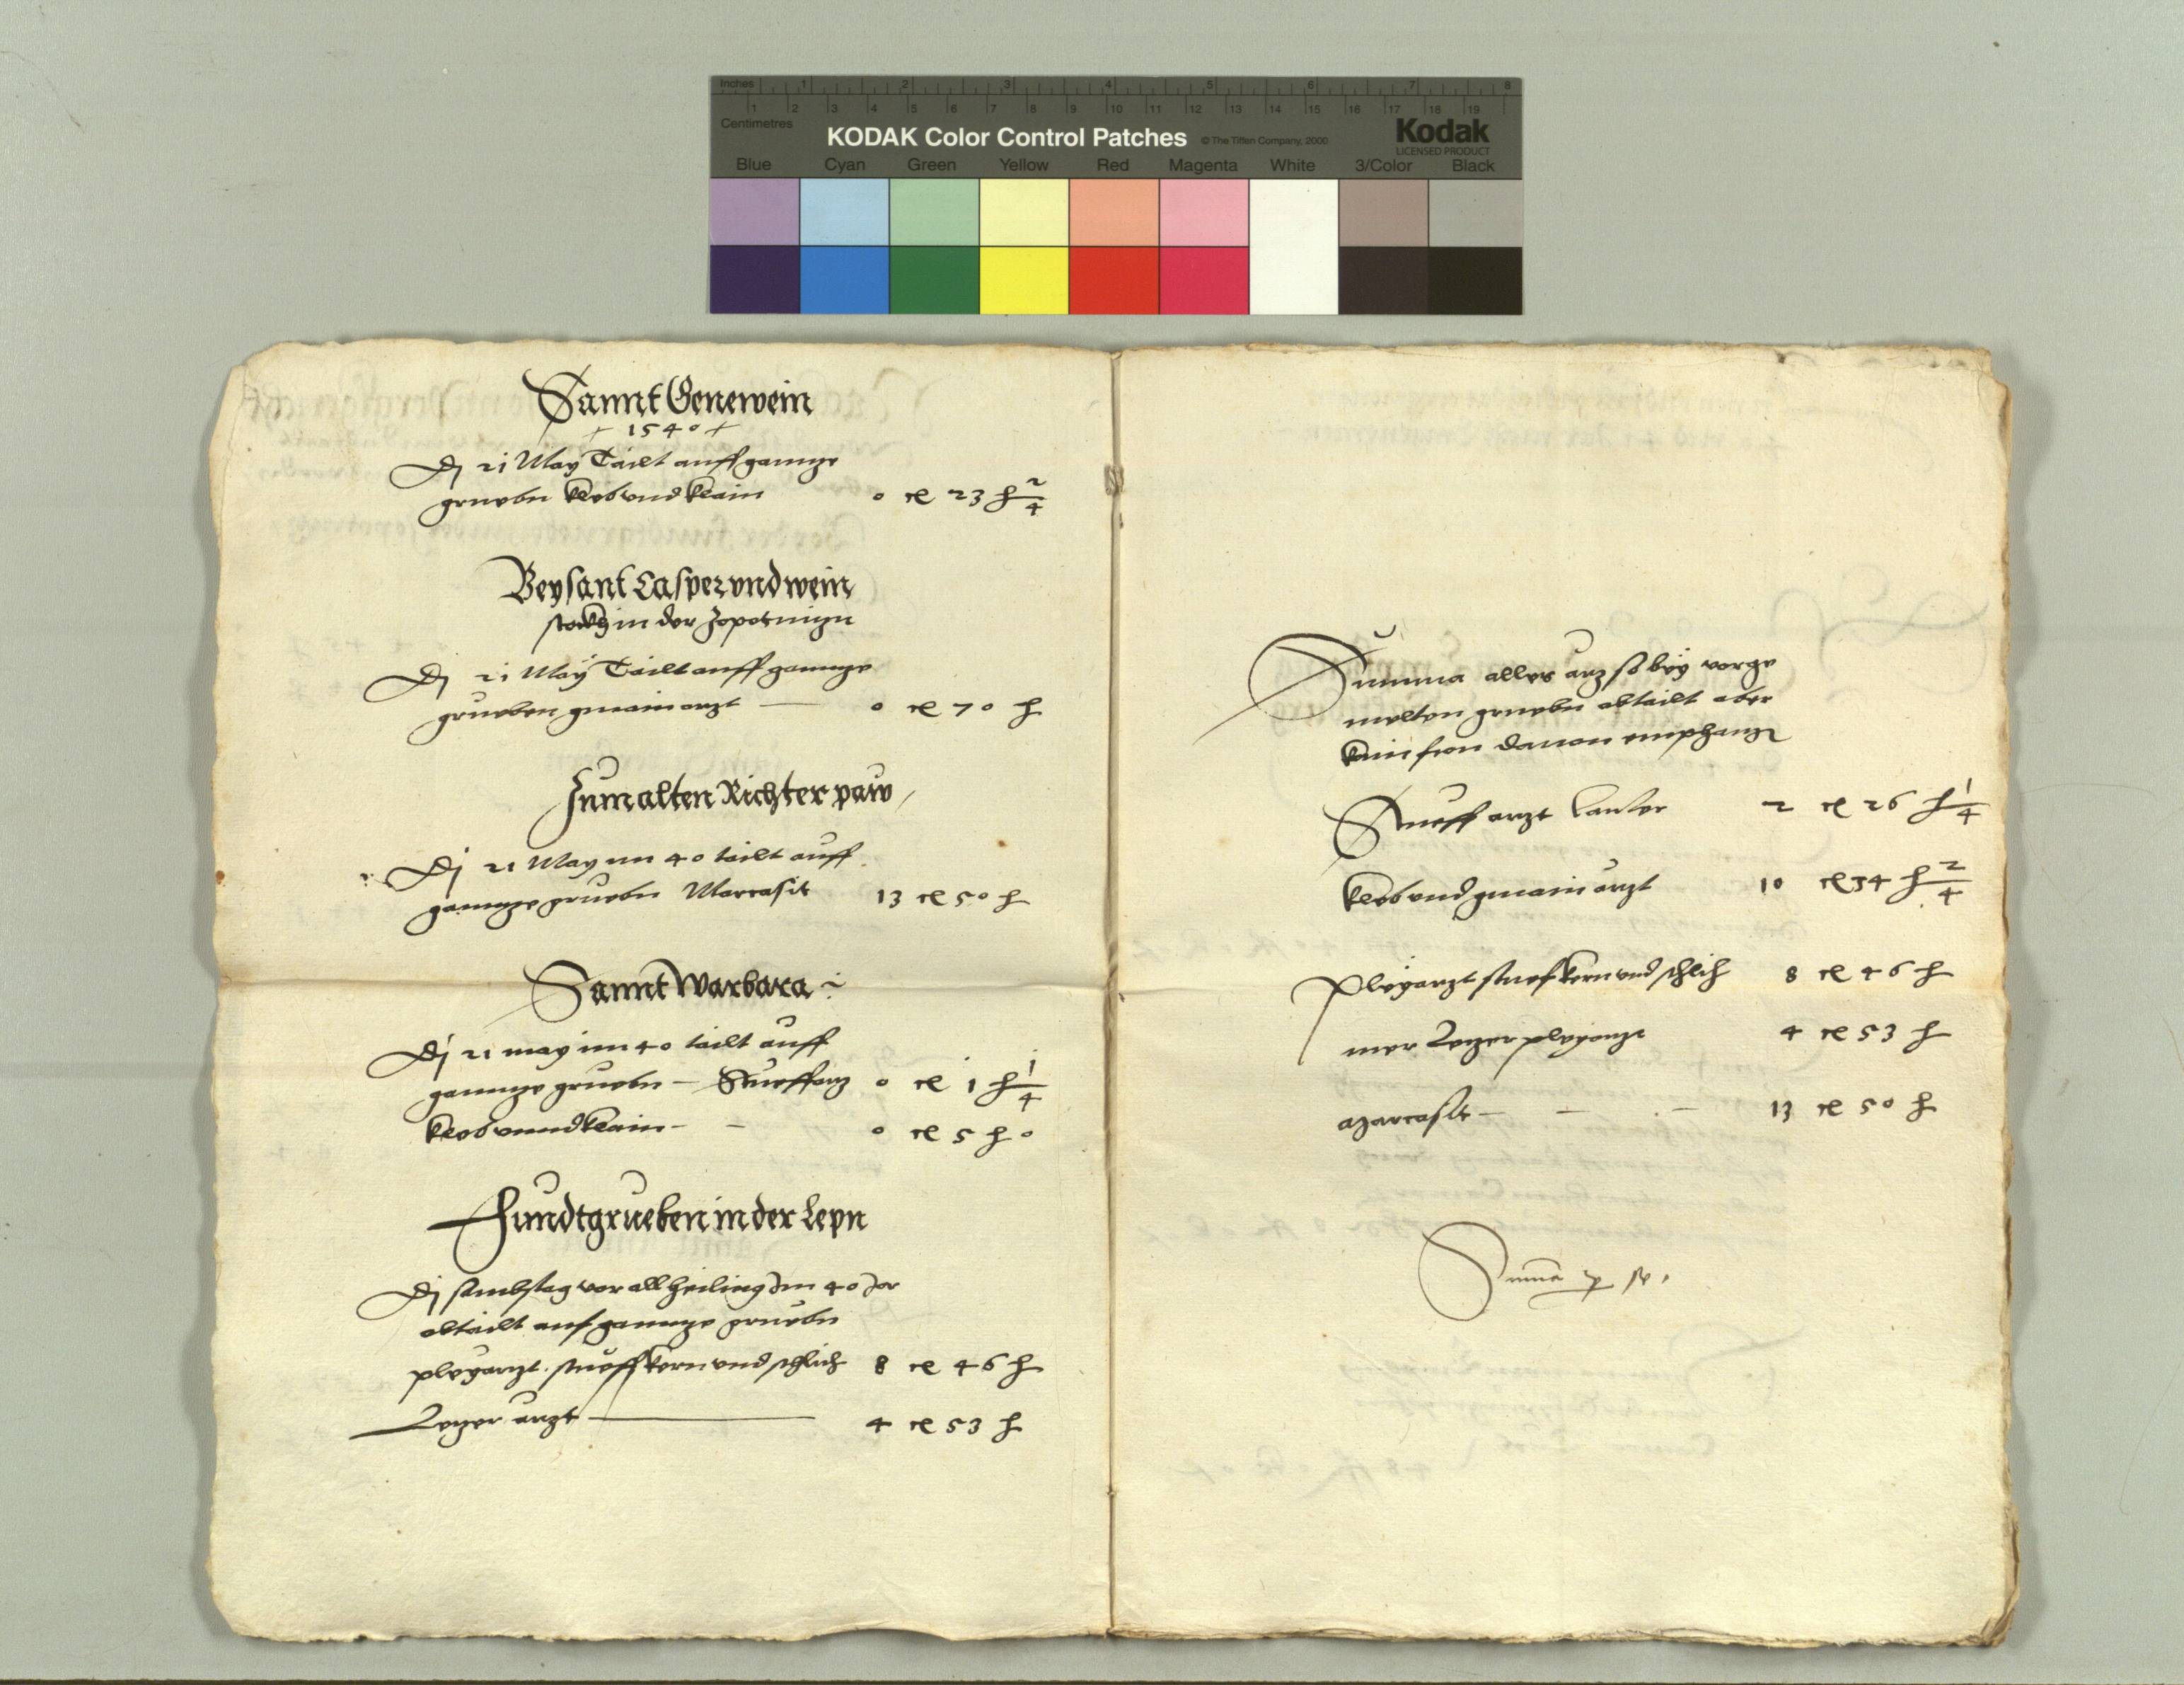 Inches 1 2 3 4 5 6 7 8
1 2 3 4 5 6 7 8 9 10 11 12 13 14 15 16 17 18 19
Centimetres
KODAK Color Control Patches © The Tiffen Company, 2000 Kodak
LICENSED PRODUCT
Blue Cyan Green Yellow Red Magenta White 3/Color Black
Sannt Genewein
1540
Dj 21 May Tailt auff gannze
gruebn kleb vnd klain 0 cℓ 23 ℔ 2/4
Bey sant Casper vnd wein
stockh in der Zopotnizn
Dj 21 May Tailt auff gannze
grueben gmain arzt — 0 cℓ 70 ℔
Zum alten Richter paw
Dj 21 May im 40 tailt auff
gannze gruebn Marcasit 13 cℓ 50 ℔
Sannt Warbara
Dj 21 may im 40 tailt auff
gannze gruebn — Stueffarz 0 cℓ 1 ℔ 1/4
kleb vnnd klain — — 0 cℓ 5 ℔ 0
Fundtgrueben in der Lepn
Dj sambstag vor all heiling Im 40 Jar
abtailt auf gannze gruebn
pleyarzt stueff kern vnd schlich 8 cℓ 46 ℔
Sezer arzt — 4 cℓ 53 ℔
Summa alles arz so bey vorge
melten gruebn abtailt aber
kain fron dauon emphangen
Stueff arzt lauter 2 cℓ 26 ℔ 1/4
kleb vnd gmain arzt 10 cℓ 34 ℔ 2/4
Pleyarzt stuef kern vnd schlich 8 cℓ 46 ℔
mer Sezer pleyarzt 4 cℓ 53 ℔
Marcasit — — — 13 cℓ 50 ℔
Summa p se